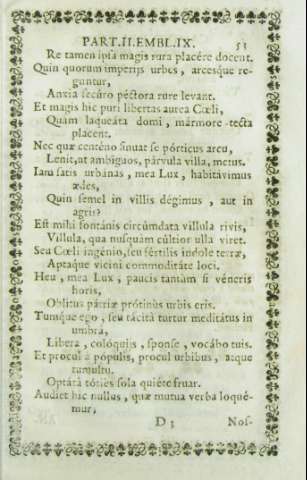 PART.II.EMBL.IX. 53
Re tamen ipsâ magis rura placére docent.
Quin quorum imperijs urbes, arcesque re-
guntur,
Anxia secúro péctora rure levant.
Et magis hic puri libertas aurea Cœli,
Quàm laqueáta domi, mármore tecta
placent.
Nec quæ centéno sinuat se pórticus arcu,
Lenit, ut ambiguos, párvula villa, metus.
Iam satis urbánas, mea Lux, habitávimus
ædes,
Quin semel in villis dégimus, aut in
agris?
Est mihi fontánis circúmdata villula rivis,
Víllula, qua nusquàm cúltior ulla viret.
Seu Cœli ingénio, seu fértilis indole terræ,
Aptáque vicini commoditáte loci.
Heu, mea Lux, paucis tantùm si véneris
horis,
Oblitus pátriæ prótinùs urbis eris.
Tumque ego, seu tácitâ turtur meditátus in
umbra,
Libera, colóquijs, sponse, vocábo tuis.
Et procul à pópulis, procul urbibus, atque
tumultu.
Optátâ tóties sola quiéte fruar.
Audiet hic nullus, quæ mutua verba loqué-
mur,
D 3 Nos-